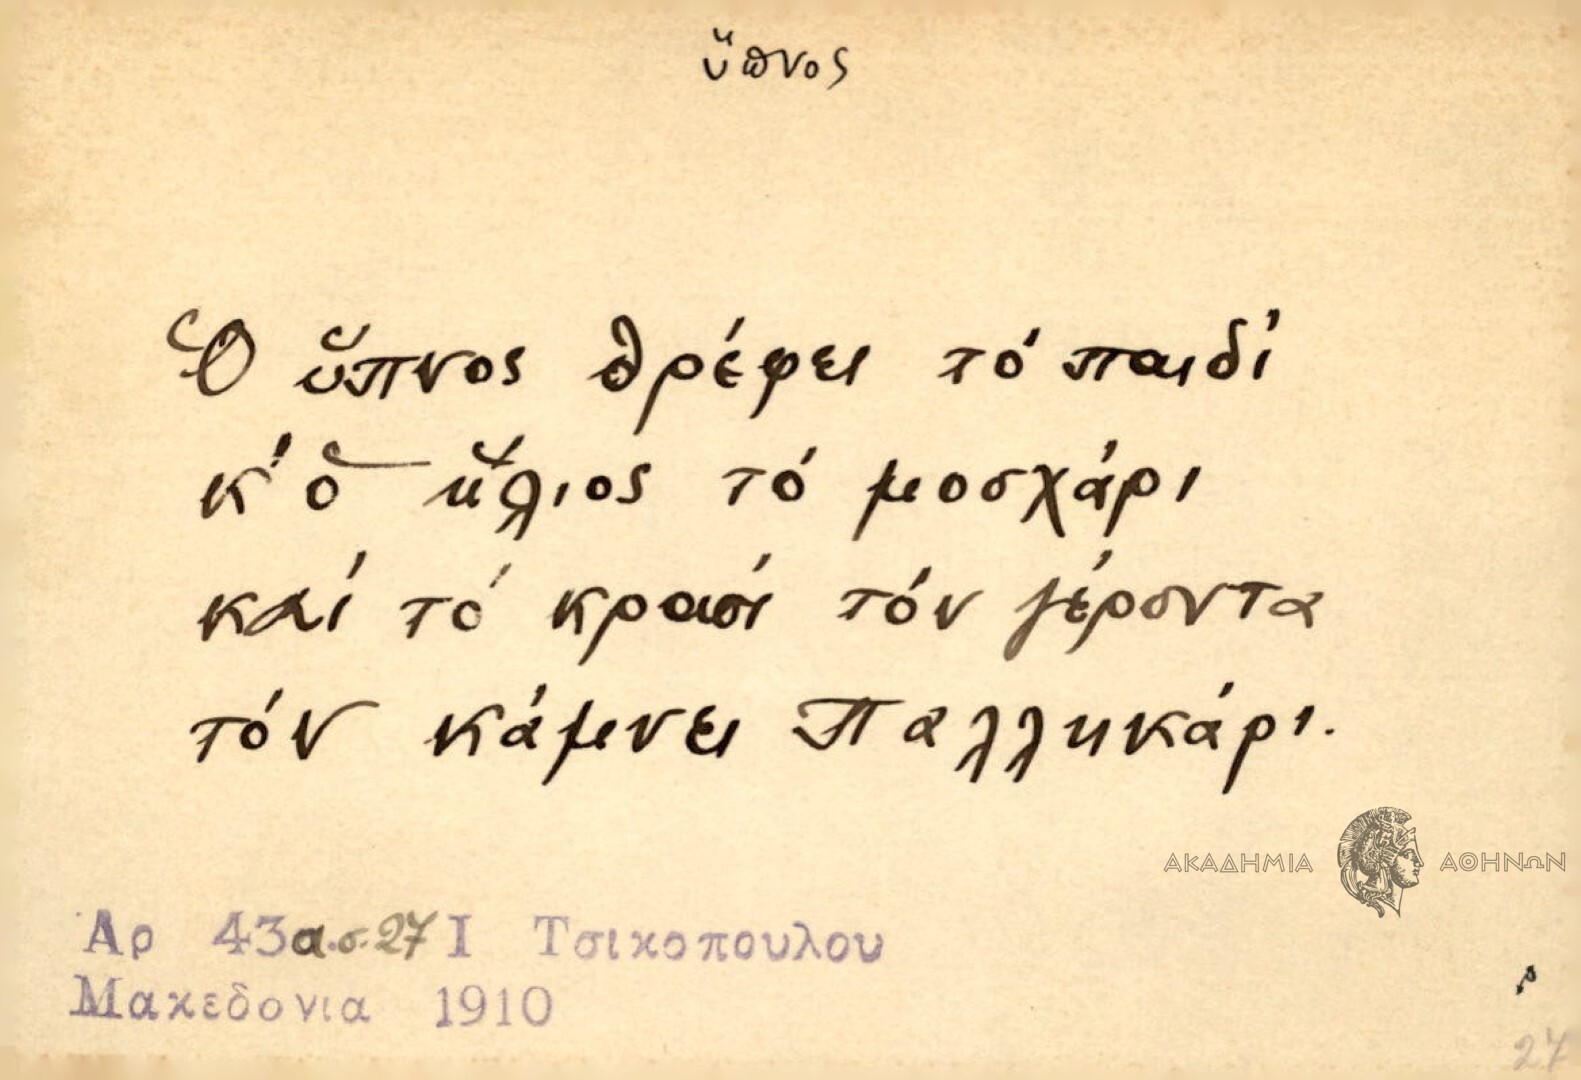 ὕπνος
Ὁ ὕπνος θρέφει τό παιδί
κ' ὁ ἥλιος τό μοσχάρι
καί τό κρασί τόν γέροντα
τόν κάμνει Παλληκάρι.
ΑΚΑΔΗΜΙΑ ΑΘΗΝΩΝ
Αρ 43α.σ.27 Ι Τσικοπουλου
Μακεδονια 1910
27